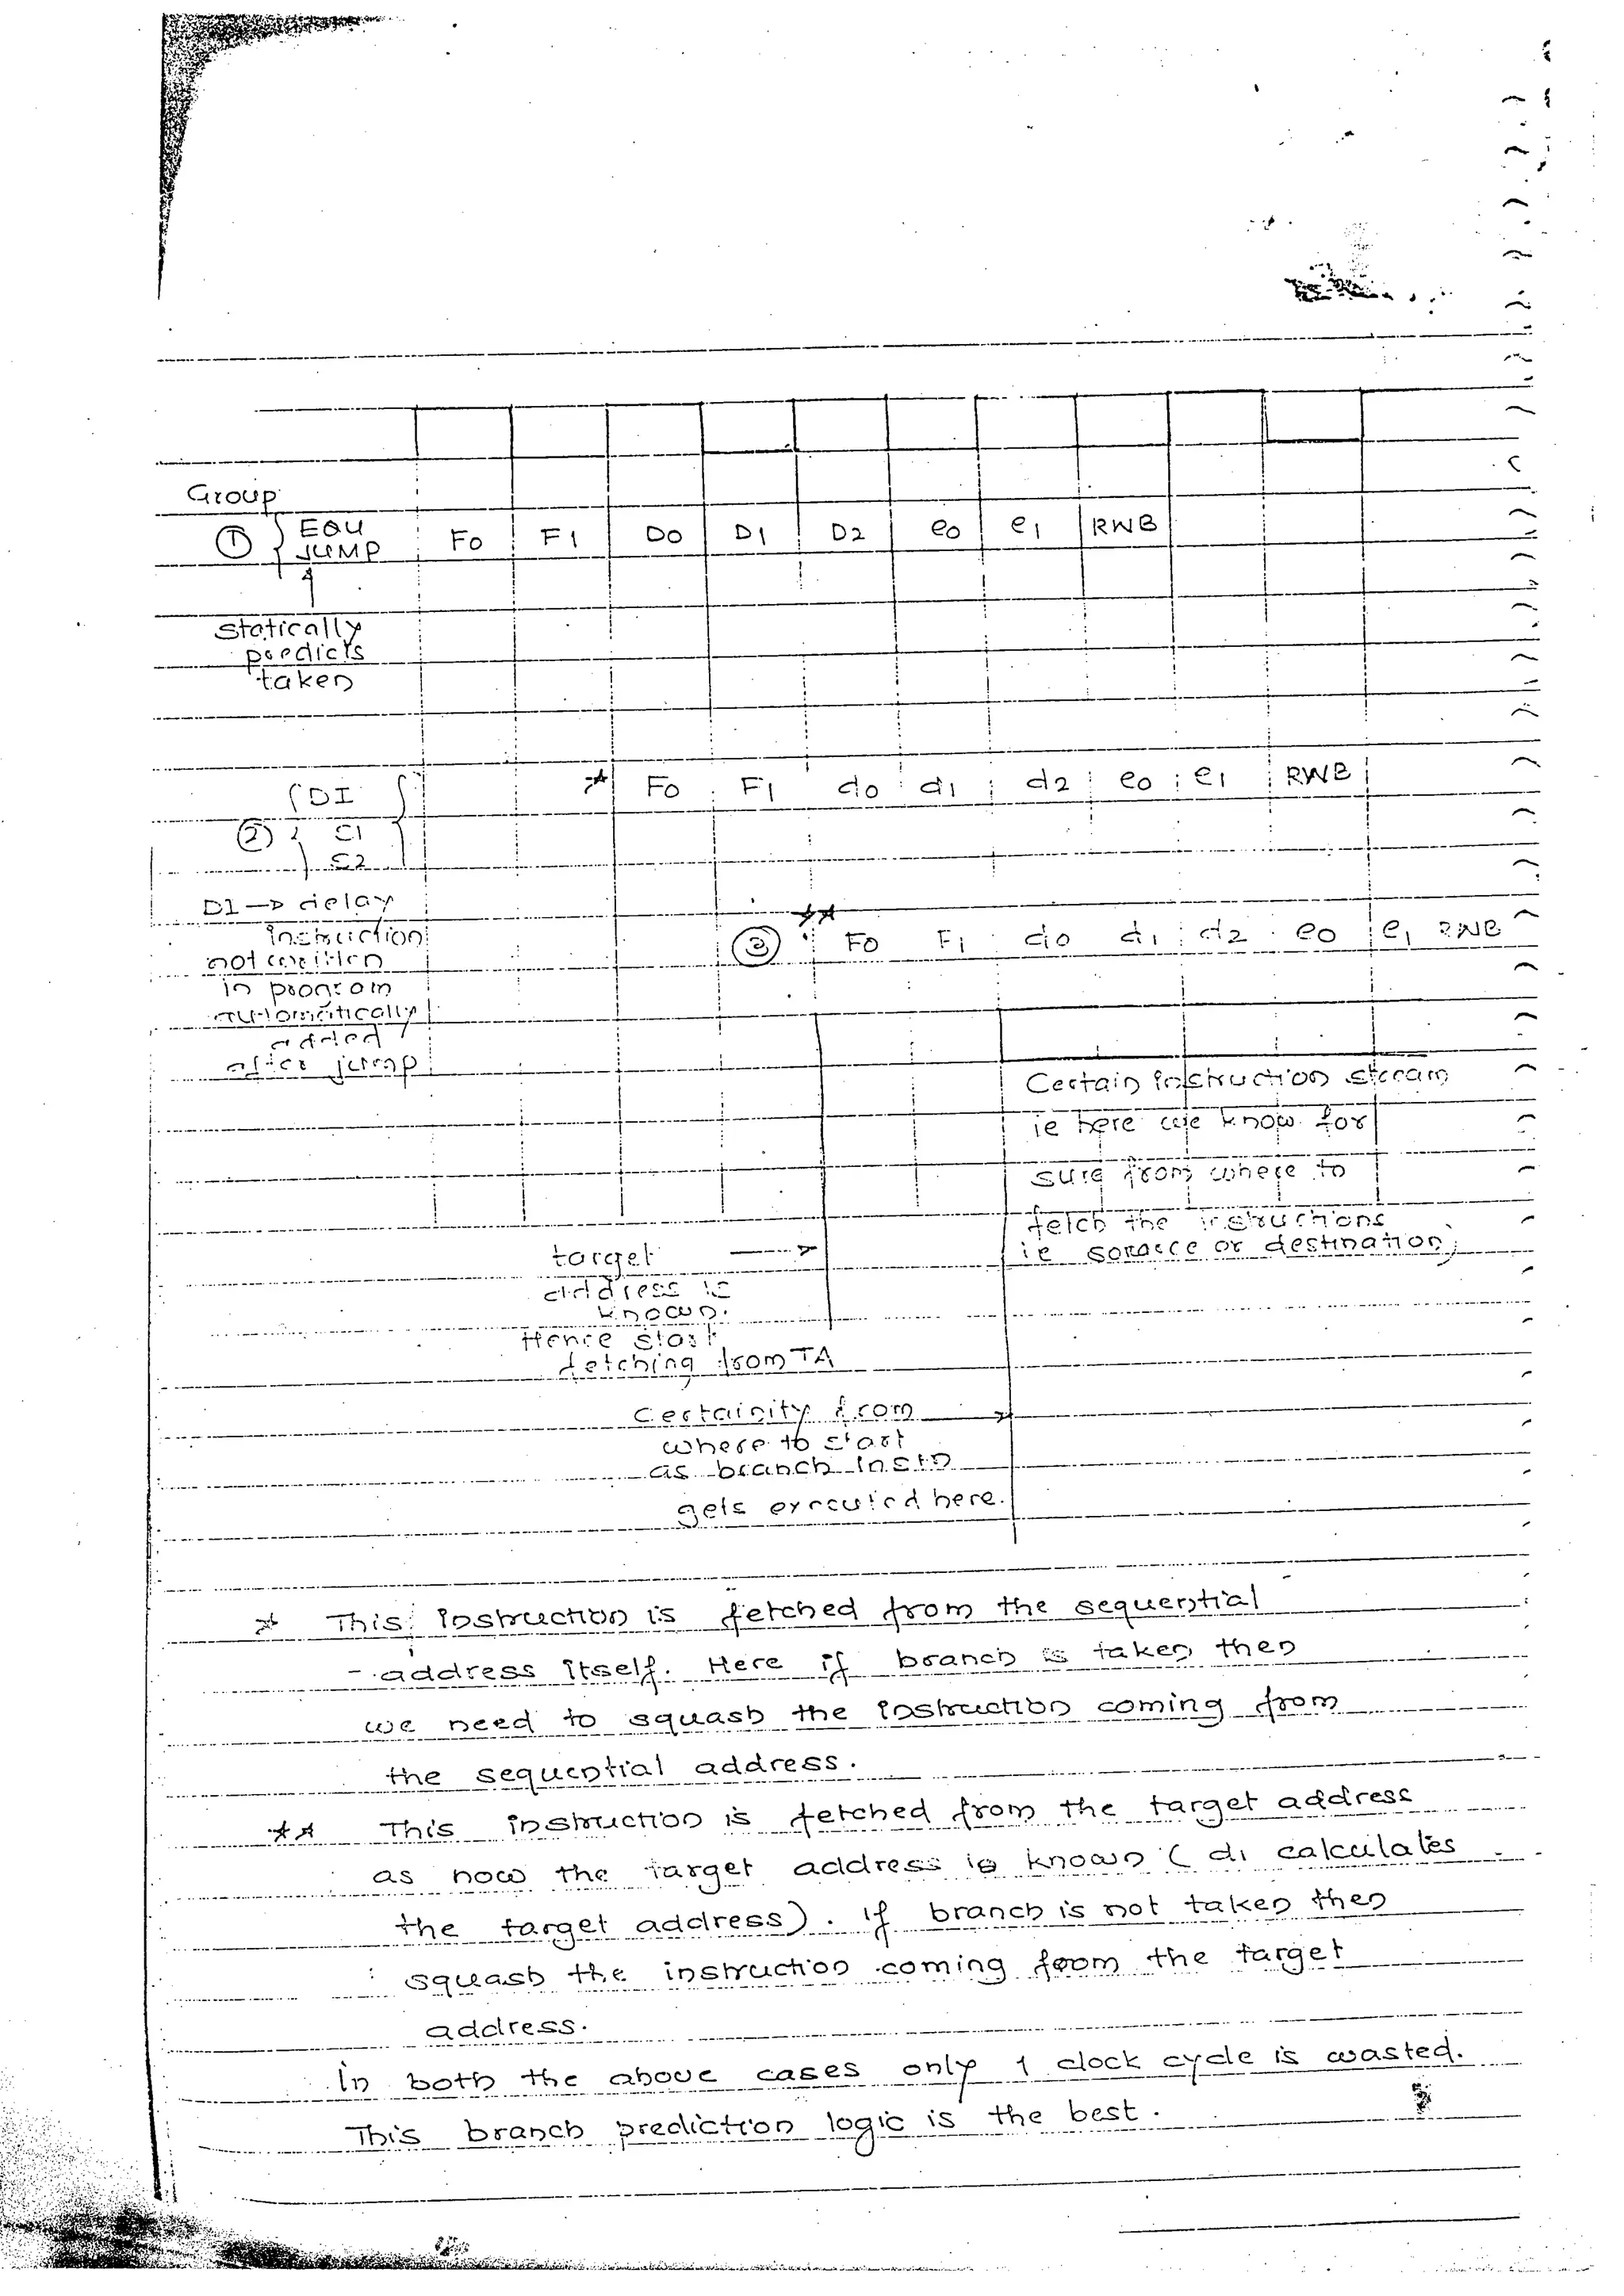 Group
① { EQU
JUMP
F0 F1 D0 D1 D2 e0 e1 RWB
statically
predicts
taken
* F0 F1 d0 d1 d2 e0 e1 RWB
DI
② S1
S2
DI → delay
instruction
not written
in program
automatically
added
after jump
**
③ F0 F1 d0 d1 d2 e0 e1 RWB
Certain instruction stream
ie here we know for
sure from where to
fetch the instructions
ie source or destination
target →
address is
known.
Hence start
fetching from TA
certainity from
where to start
as branch instn
gets executed here.
* This instruction is fetched from the sequential
address itself. Here if branch is taken then
we need to squash the instruction coming from
the sequential address.
** This instruction is fetched from the target address
as now the target address is known ( d1 calculates
the target address). If branch is not taken then
squash the instruction coming from the target
address.
In both the above cases only 1 clock cycle is wasted.
This branch prediction logic is the best.